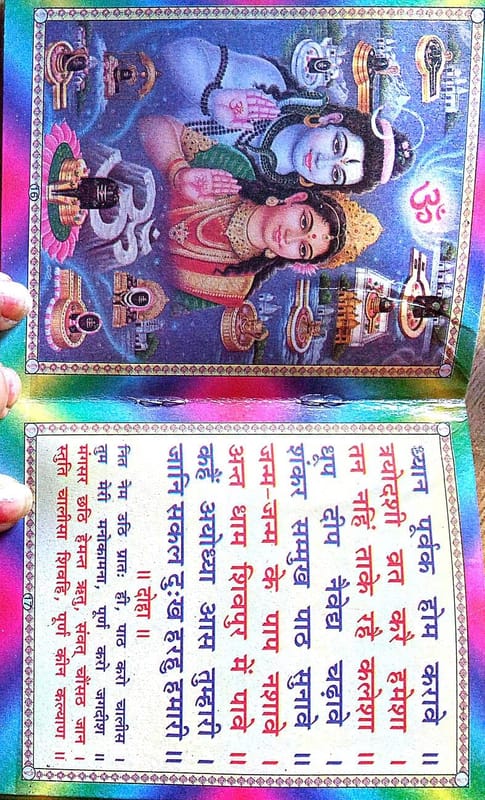 ॐ
ॐ
16
ध्यान पूर्वक होम करावे ॥
त्रयोदशी व्रत करे हमेशा ।
तन नहिं ताके रहे कलेशा ॥
धूप दीप नैवेद्य चढ़ावे ।
शंकर सम्मुख पाठ सुनावे ॥
जन्म-जन्म के पाप नशावे ।
अन्त धाम शिवपुर में पावे ॥
कहैं अयोध्या आस तुम्हारी ।
जानि सकल दुःख हरहु हमारी ॥
॥ दोहा ॥
नित नेम उठि प्रातः ही, पाठ करो चालीस ।
तुम मेरी मनोकामना, पूर्ण करो जगदीश ॥
मंगसर छठि हेमन्त ऋतु, संवत् चौंसठ जान ।
स्तुति चालीसा शिवहि, पूर्ण कीन कल्याण ॥
17